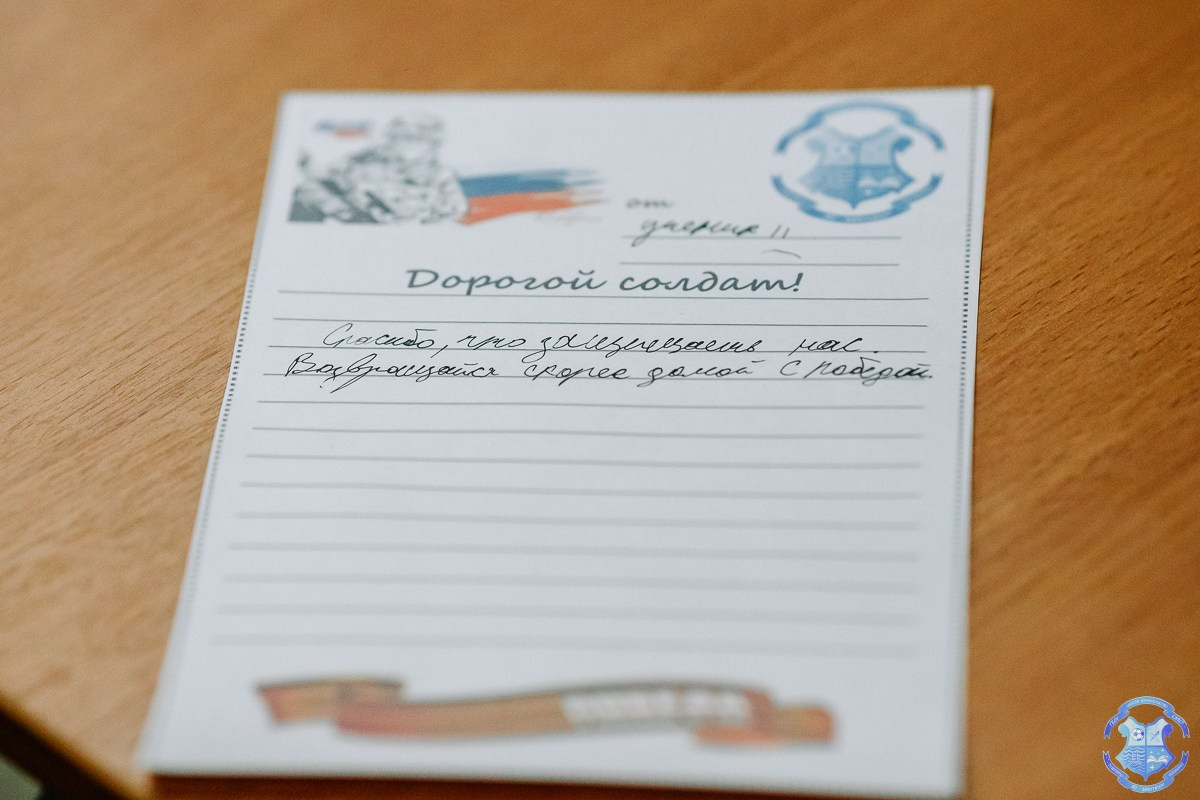 от
ученик 11
Дорогой солдат!
Спасибо, что защищаешь нас.
Возвращайся скорее домой с победой.